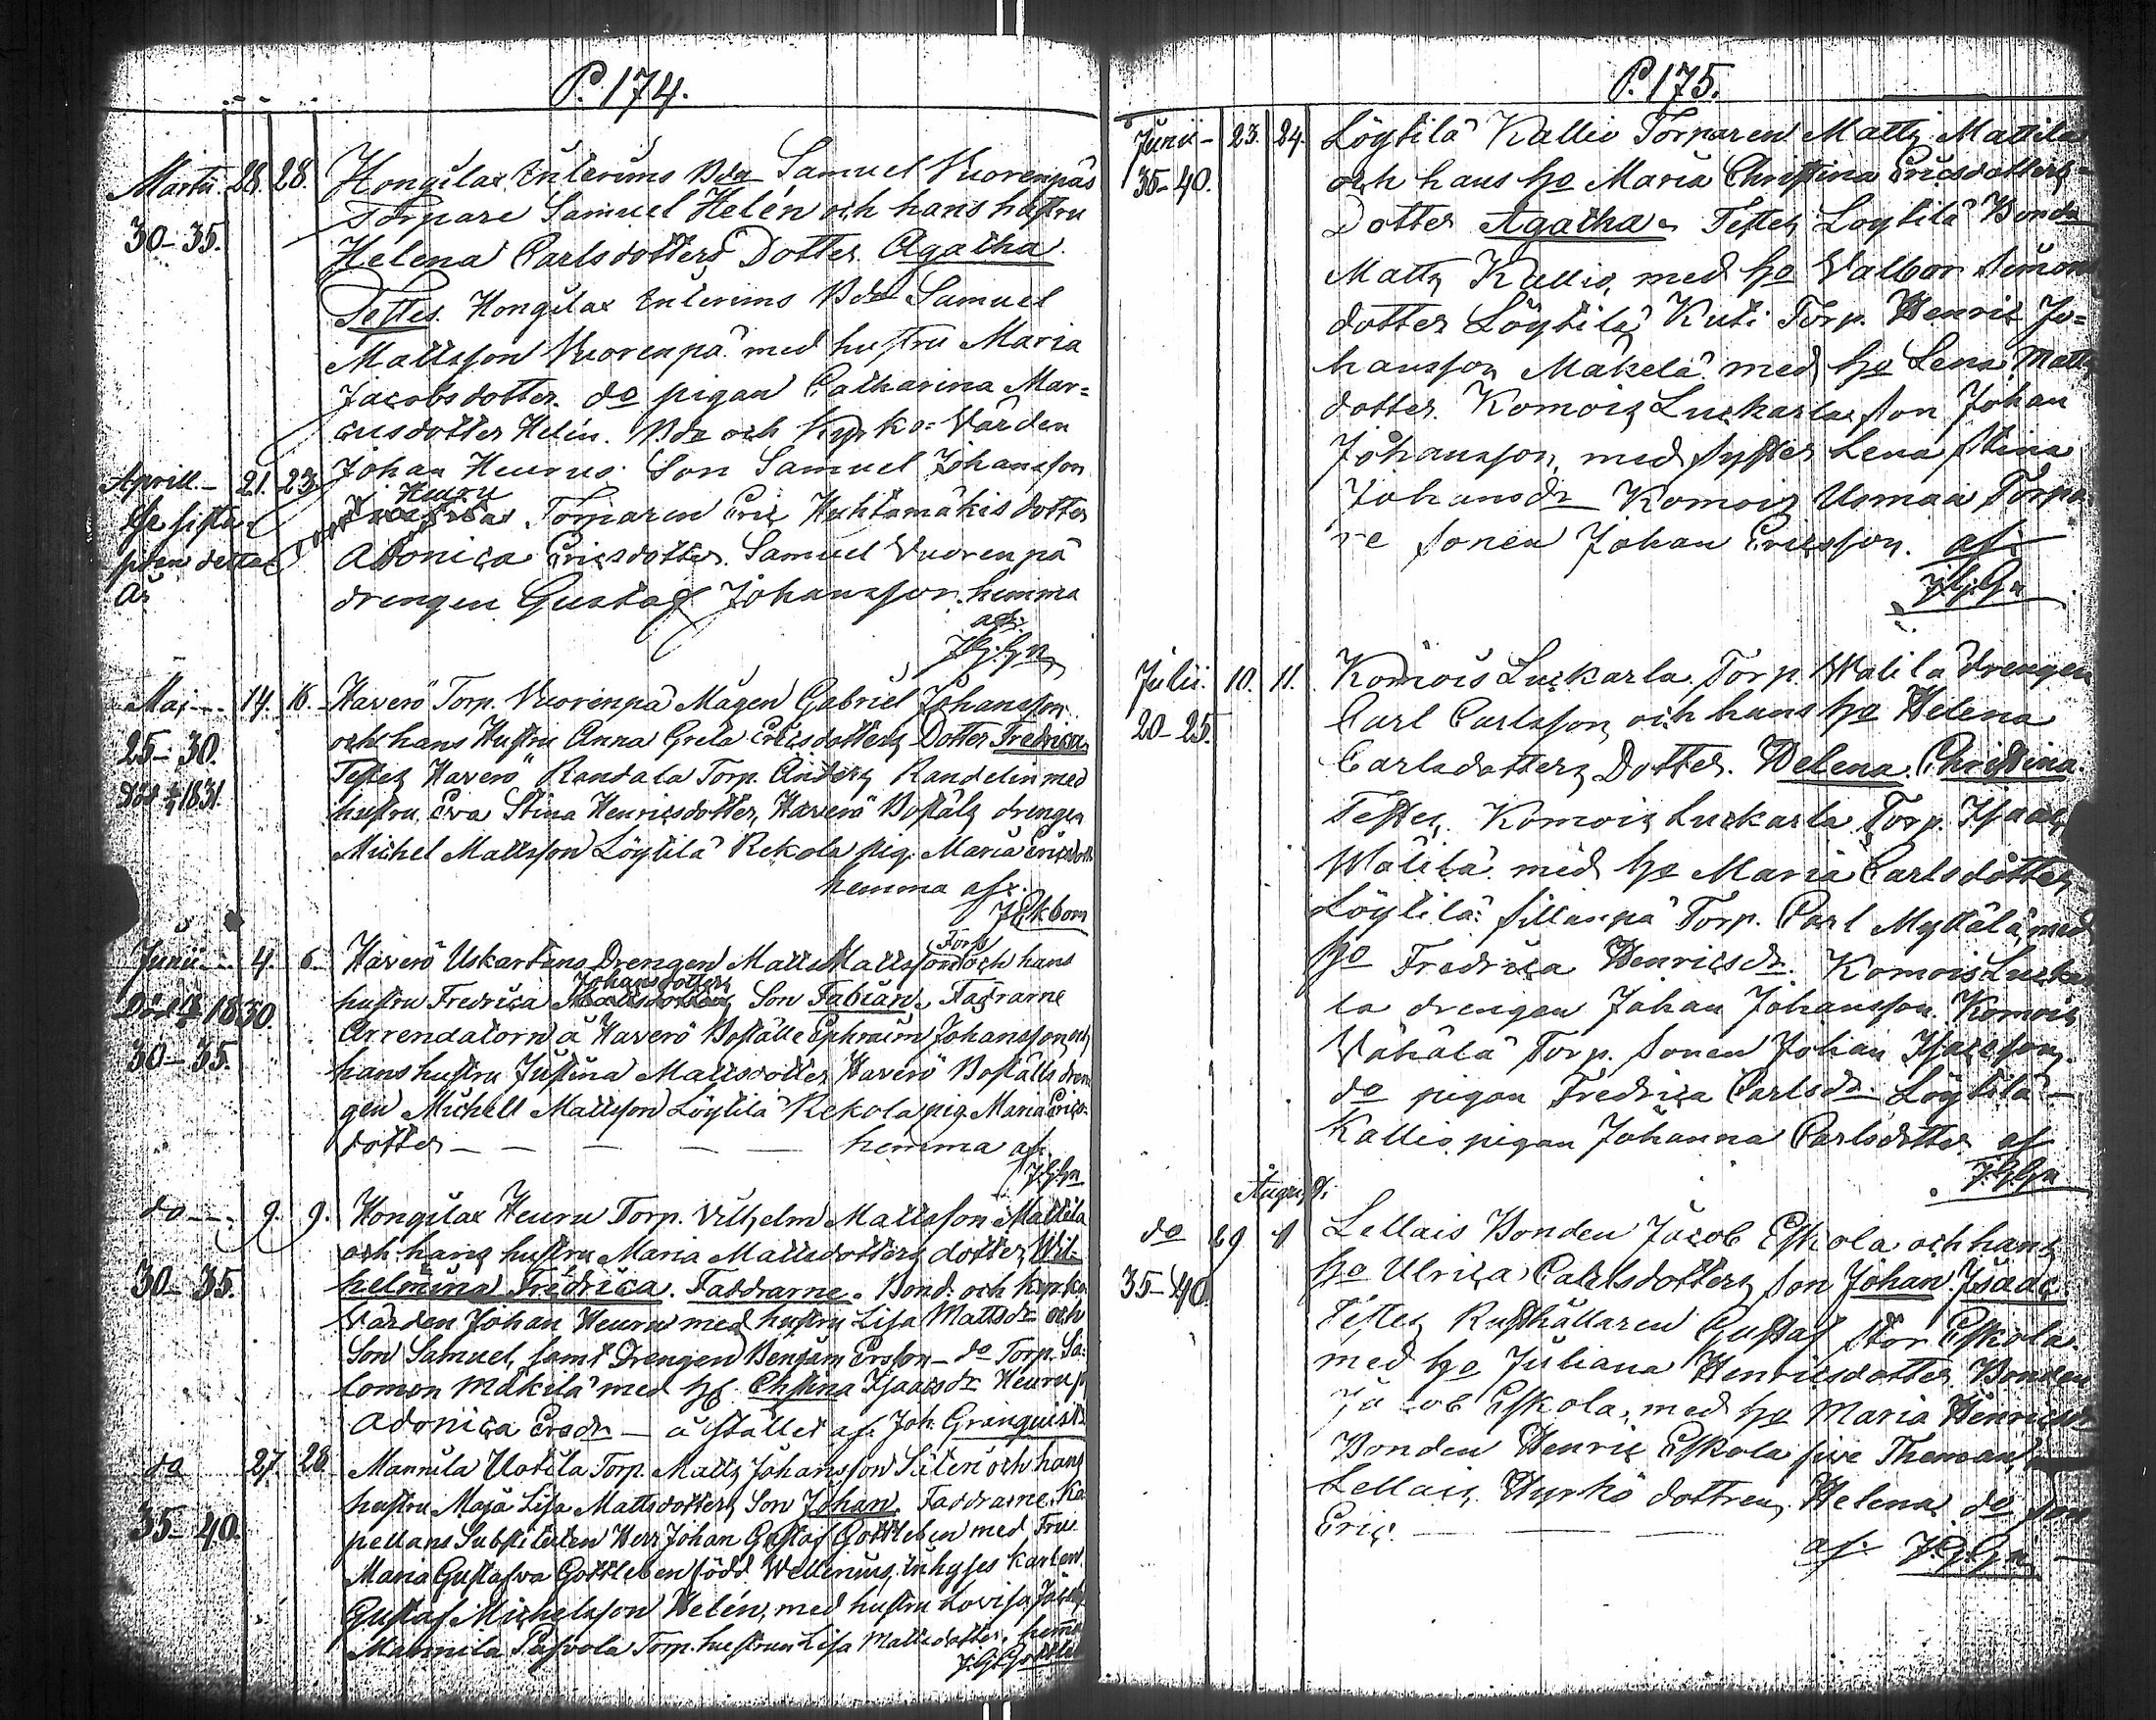 P. 174.
Martii. 28. 28. Hongilax Interims Bdn Samuel Vuorenpäs
30-35. Torpare Samuel Helén och hans hustru
Helena Carlsdotters Dotter. Agatha.
Testes. Hongilax Interims Bdn Samuel
Mattsson Vuorenpä med hustru Maria
Jacobsdotter. do pigan Catharina Mar=
cusdotter Helén. Bdn och Kyrko=Värden
Johan Heurus Son Samuel Johansson
Aprill. - 21. 23.
Heuru Torparen Eric Huhtamäkis dotter
Adonica Ericsdotter. Samuel Vuorenpä
drengen Gustaf Johansson. hemma
af:
J.G.Gn
Maj - 14. 16. Haverö Torp. Vuorenpä Mågen Gabriel Johansson
25-30. och hans Hustru Anna Greta Ericsdotters Dotter Fredrica
Testes Haverö Randala Torp. Anders Randelin med
Död 1831. hustru Eva Stina Henricsdotter, Haverö Boställs drengen
Michel Mattsson Löytilä Rekola pig. Maria Ericsdott
hemma af.
J Ekbom
Junii - 4. 6. Haverö Uskartins Drengen Matts Mattsson Torp och hans
hustru Fredrica Johansdotters Son Fabian. Faddrarne
Död 1830. Arrendatorn å Haverö Boställe Ephraim Johansson och
30-35. hans hustru Justina Mattsdotter Haverö Boställs dren
gen Michell Mattsson Löytilä Rekola pig. Maria Erics-
dotter - - - - hemma af.
J.G.Gn
do - 9. 9. Hongilax Heuru Torp. Vilhelm Mattsson Mattila
och hans hustru Maria Mattsdotters dotter Wil-
30-35. helmina Fredrica. Faddrarne. Bond. och Kyrko
Värden Johan Heuru med hustru Lisa Mattsdr och
Son Samuel, samt Drengen Benjam Ersson - do Torp. Sa-
lomon Mäkilä med h. Chstina Isaacsdr Heuru p
Adonica Ersdr - å stället af. Joh. Granquist
do 27. 28. Mannila Uotila Torp. Matts Johansson Säteri och hans
hustru Maja Lisa Mattsdotters Son Johan. Faddrarne. Ka
35-40. pellans Substituten Herr Johan Gustaf Gottleben med Fru
Maria Gustafva Gottleben född Wellenius, inhyses karlen
Gustaf Michelsson Helén, med hustru Lovisa
Mannila Torp. hustrun Lisa Mattsdotter. hemma
P. 175.
Junii - 23. 24. Löytilä Kallio Torparen Matts Mattila
35-40. och hans ho Maria Christina Ericsdotters
Dotter Agatha. Testes Löytilä Bonden
Matts Kallio, med ho Valbor Simons
dotter Löytilä Kuti Torp. Henric Jo=
hansson Mäkelä med ho Lena Matts
dotter. Komois Luckarla Son Johan
Johansson, med syster Lena Stina
Johansdr Komois Usmaa Torpa
re sonen Johan Ericsson. af:
J.G.Gn
Julii. 10. 11. Komois Luckarla Torp. Walila drengen
20-25. Carl Carlsson och hans ho Helena
Carlsdotters Dotter. Helena Christina.
Testes. Komois Luckarla Torp. Isaac
Walila med ho Maria Carlsdotter
Löytilä Sillanpä Torp. Carl Myllälä, med
ho Fredrica Henricsdr. Komois Luckar
la drengen Johan Johansson. Komois
Vähälä Torp. sonen Johan Isacsson,
do pigan Fredrica Carlsdr Löytilä -
Kallio pigan Johanna Carlsdotter. af
J.G.Gn
August.
do 29 1 Lellais Bonden Jacob Eskola och hans
35-40. ho Ulrica Carlsdotters Son Johan Isaac.
Testes Rusthållaren Gustaf Stor Eskola
med ho Juliana Henricsdotter Bonden
Jacob Eskola, med ho Maria Henricsdr
Bonden Henric Eskola
Lellais Hyrkö dottren Helena do son
Eric. - - -
af. J.G.Gn